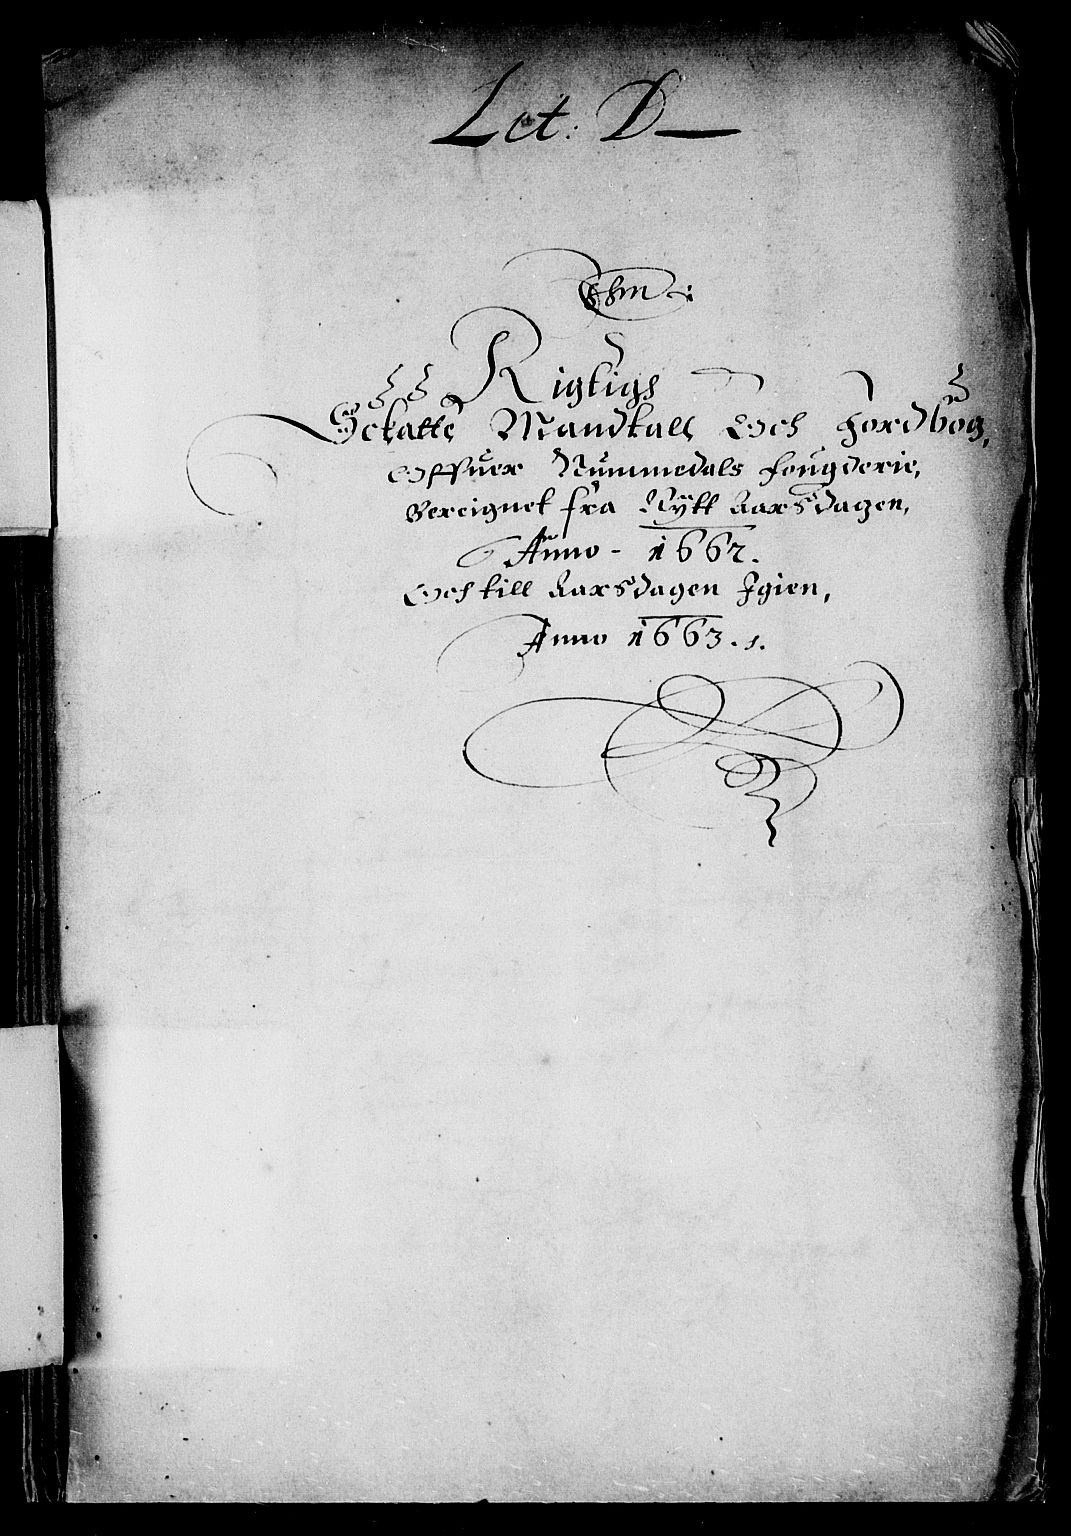 Lit: D
Rigtigh
Schatte Mandtall Och Jordbog,
Offuer Nummedals fougderie,
Bereignet fra Nytt Aarsdagen,
Anno - 1662.
Och till Aarsdagen Igien,
Anno 1663.